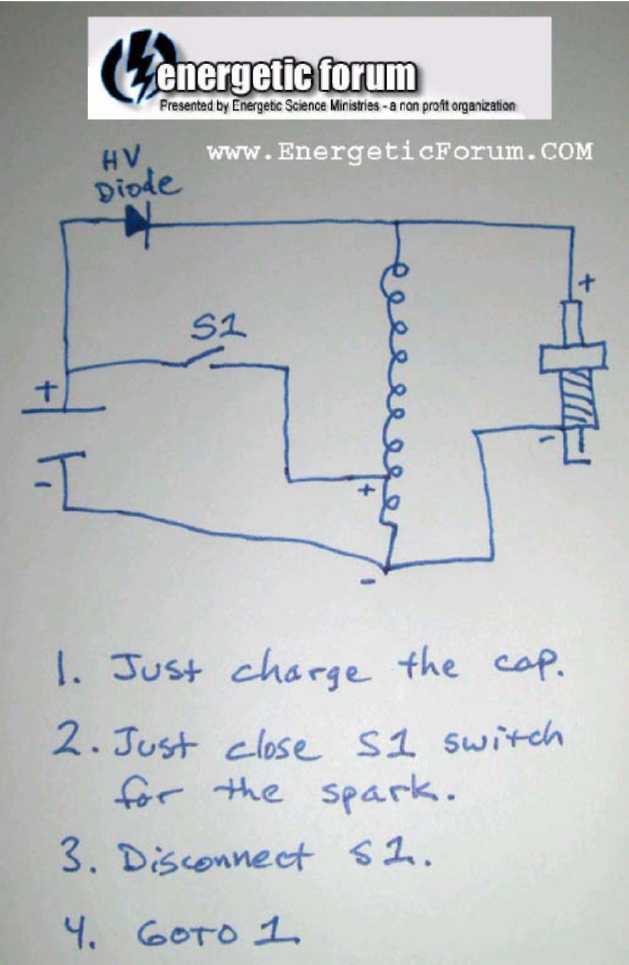 energetic forum
Presented by Energetic Science Ministries - a non profit organization
www.EnergeticForum.COM
HV
Diode
+
S1
+
-
+
-
-
+
1. Just charge the cap.
2. Just close S1 switch
for the spark.
3. Disconnect S1.
4. GOTO 1